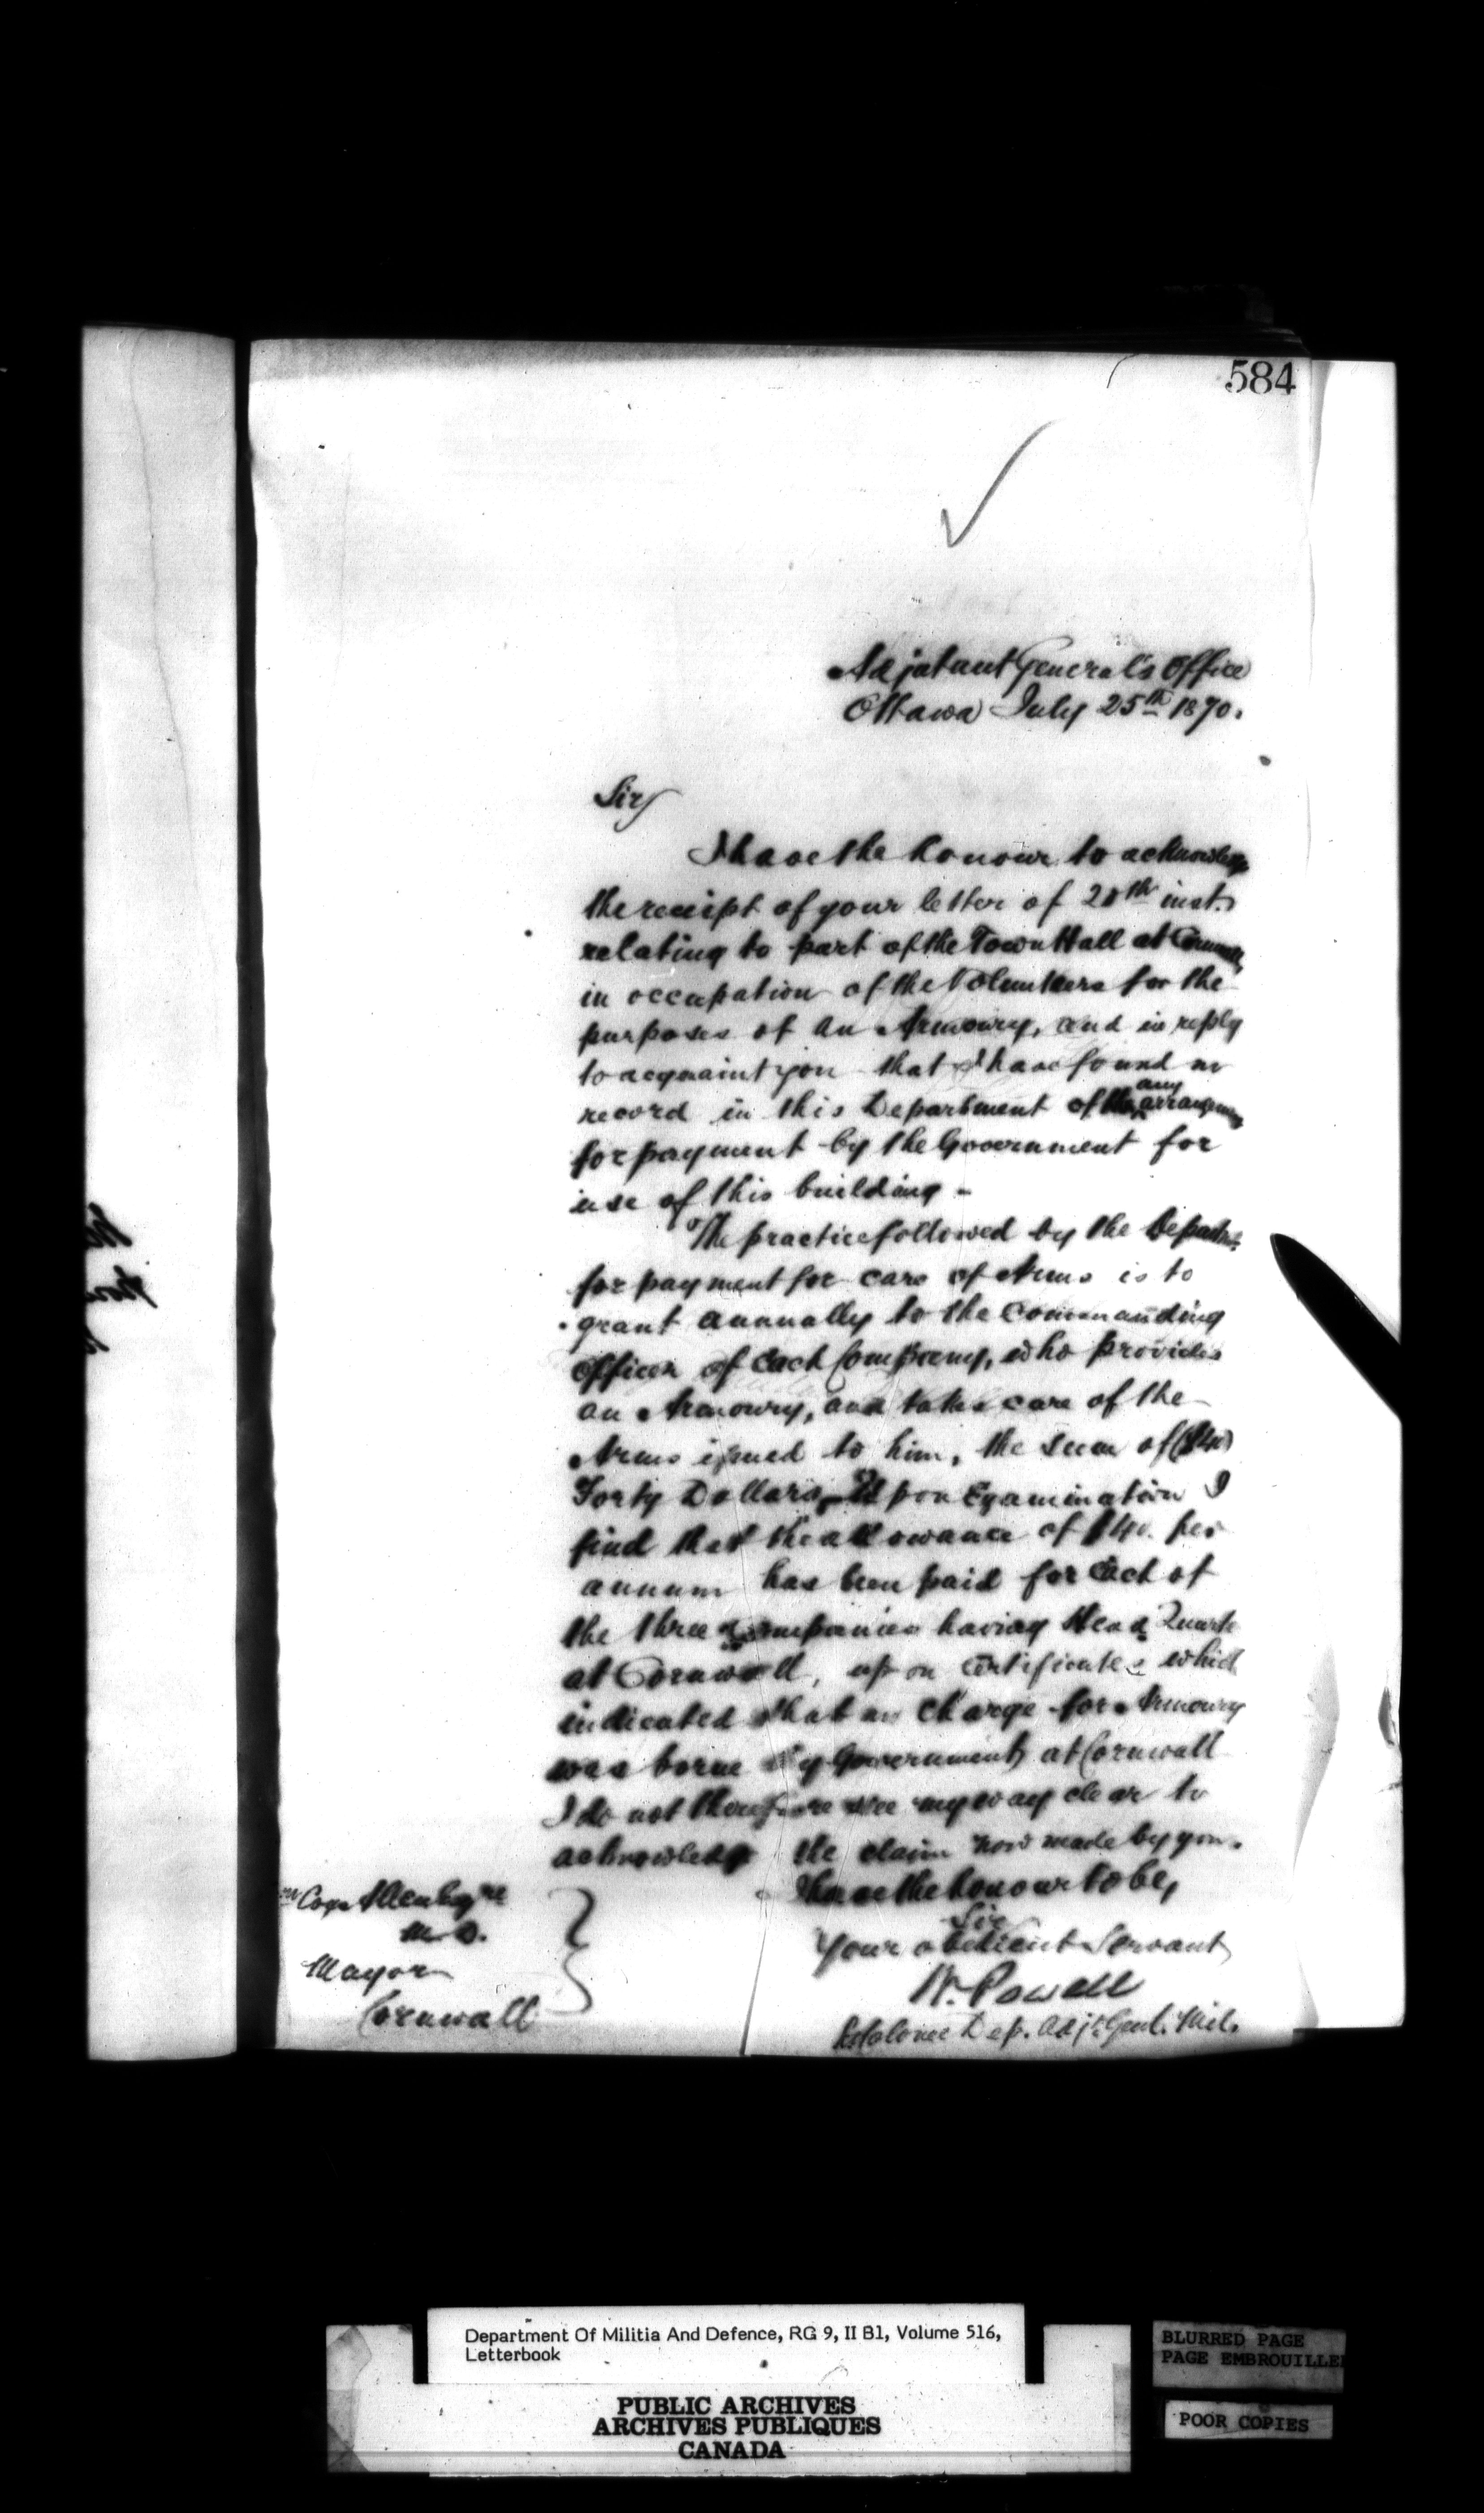 584
Adjutant General's Office
Ottawa July 25th 1870.
Sir
I have the honour to acknowledge
the receipt of your letter of 20th inst.
relating to part of the Town Hall at Cornwall,
in occupation of the Volunteers for the
purposes of an Armoury, and in reply
to acquaint you that I have found no
any
record in this Department of the arrangement
for payment by the Government for
use of this building -
The practice followed by the Departmt.
for payment for care of Arms is to
grant annually to the Commanding
Officer of each Company, who provides
an Armoury, and takes care of the
Arms issued to him, the sum of ($40)
Forty Dollars, Upon Examination I
find that the allowance of $40. per
annum has been paid for each of
the three Companies having Head Quarts
at Cornwall, upon certificates which
indicated that no charge for Armoury
was borne by Government at Cornwall
I do not therefore see my way clear to
acknowledge the claim now made by you.
I have the honour to be,
Sir
Your obedient Servant
W. Powell
Dep. Adjt. Genl. Mil.
M.D.
Mayor
Cornwall
Department Of Militia And Defence, RG 9, II B1, Volume 516,
Letterbook
PUBLIC ARCHIVES
ARCHIVES PUBLIQUES
CANADA
BLURRED PAGE
PAGE EMBROUILLE
POOR COPIES